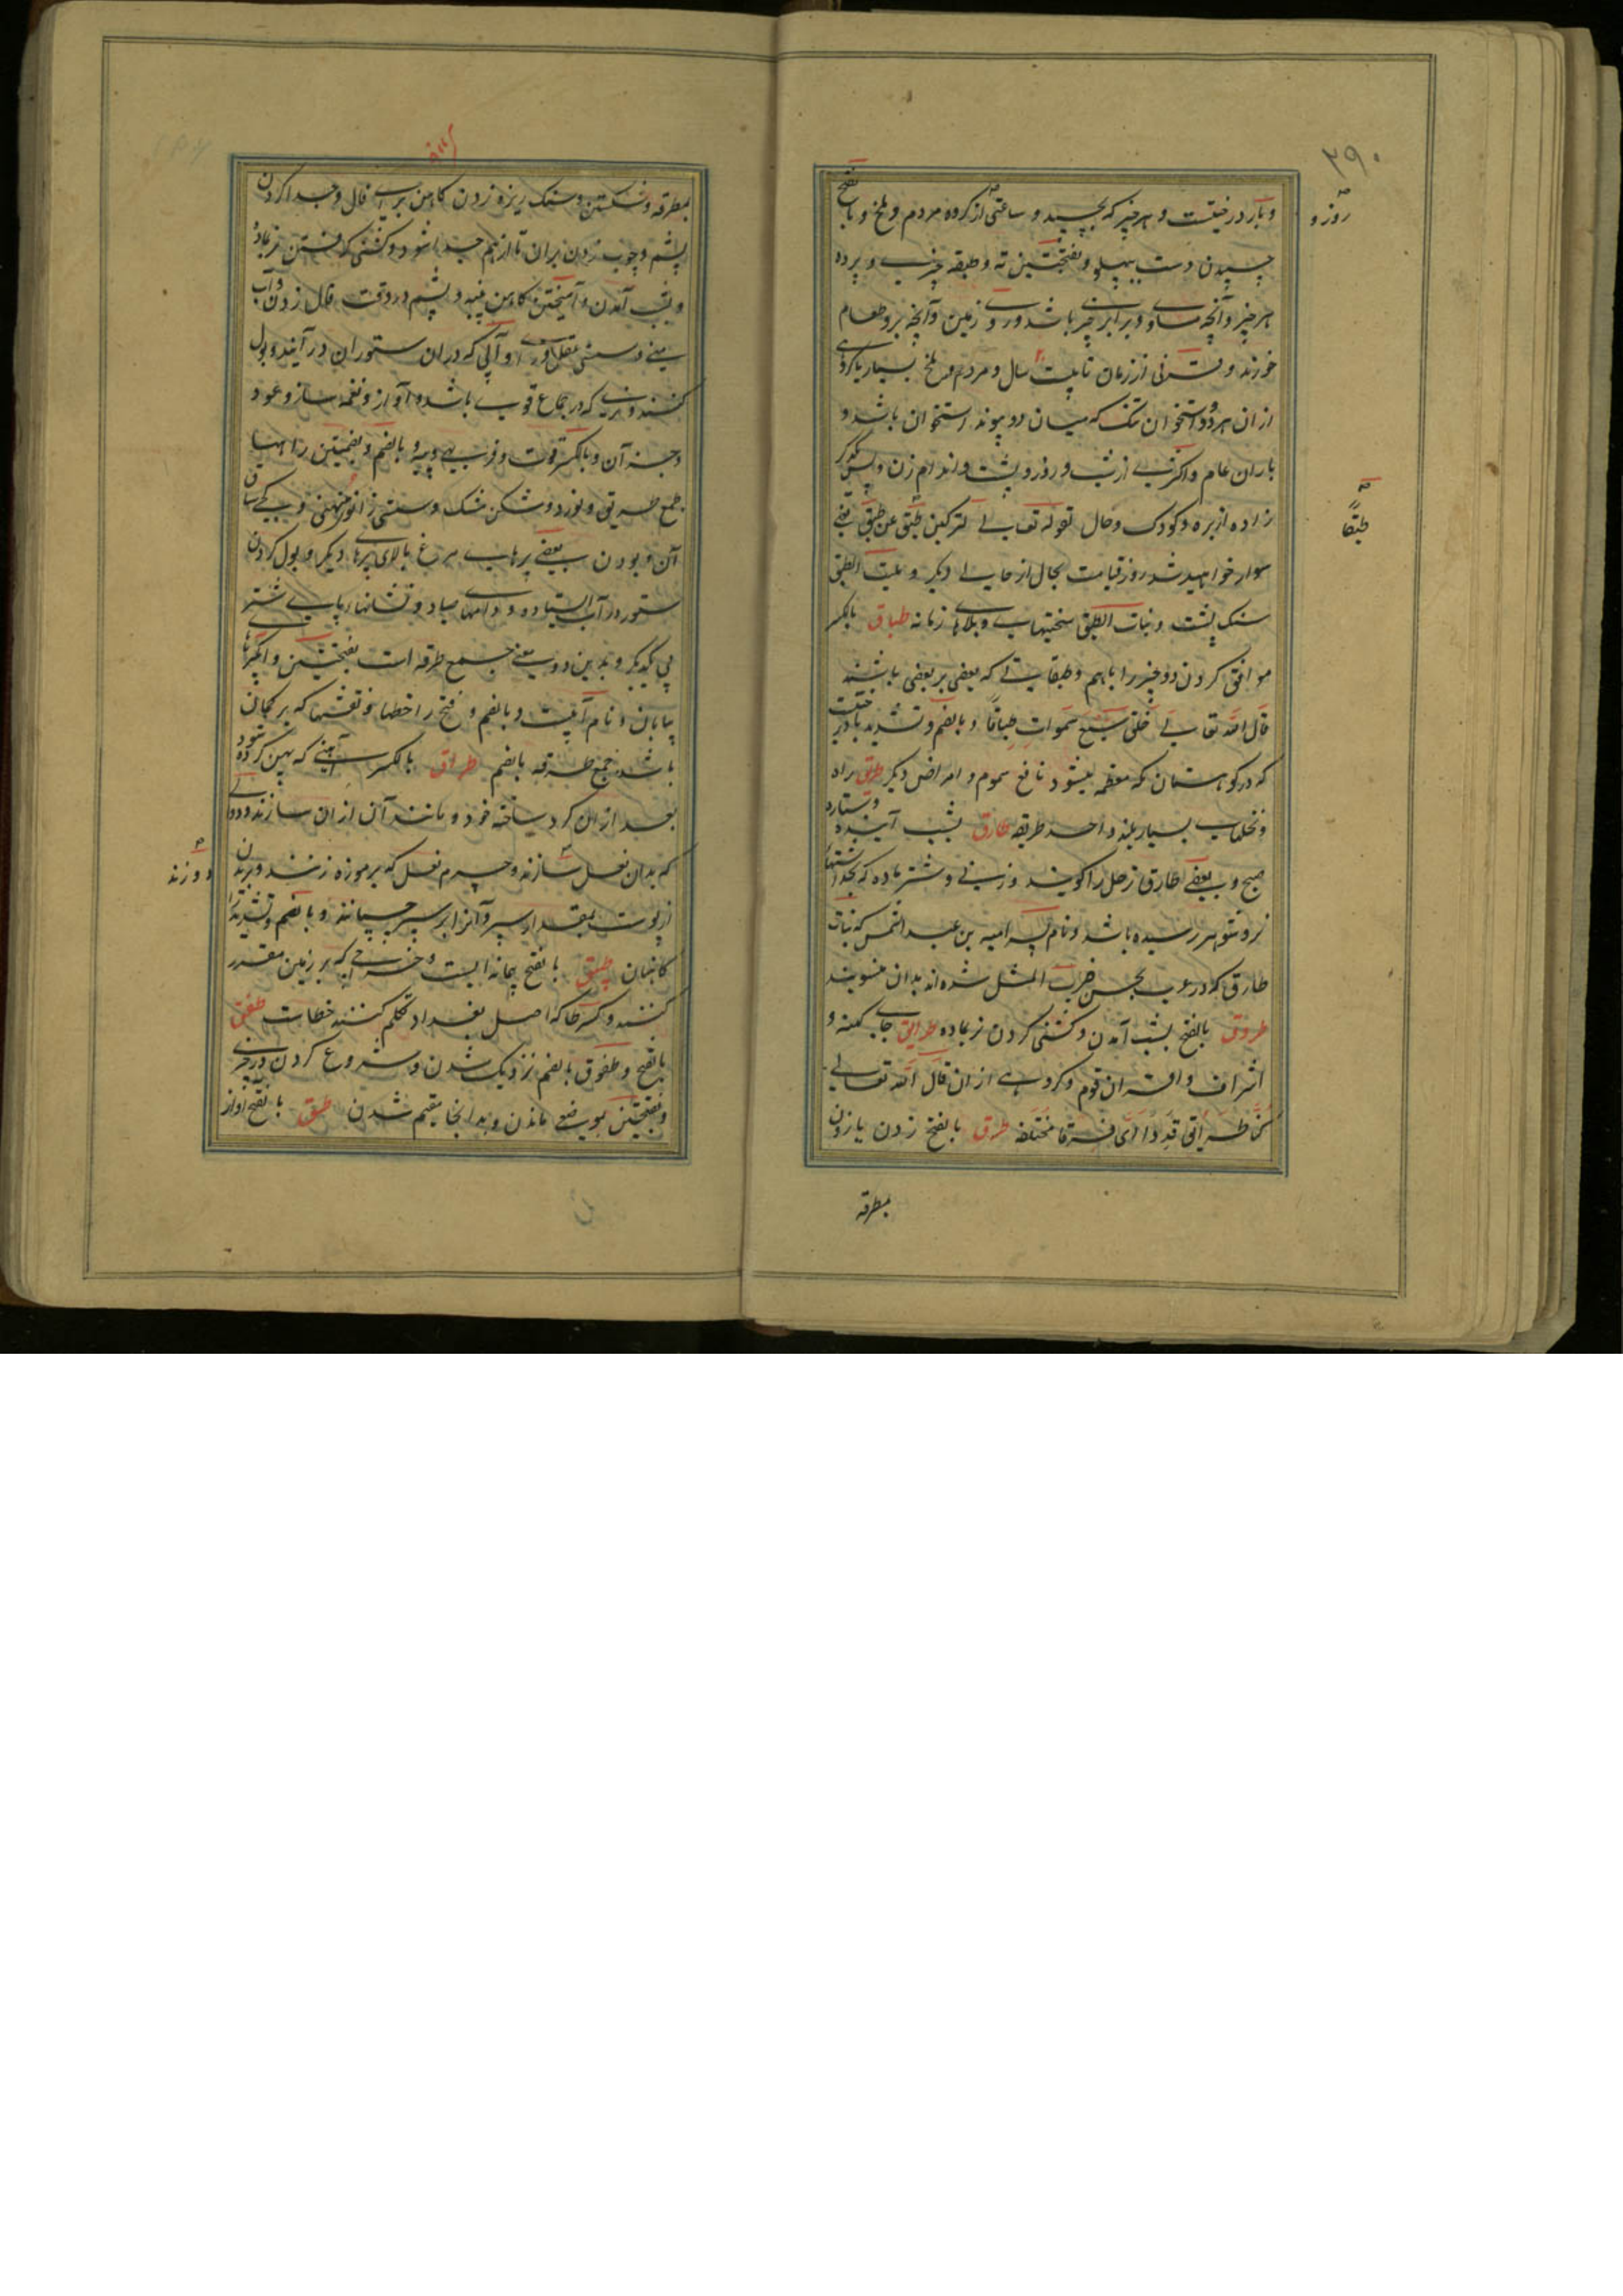 ۲۹۰
و بار درختیست و هر چیز که بچسپد و ساعتی از کروه مردم و ملخ و بالفتح
روز و
چسپیدن دست بپهلو و بفتحتین ته و طبقه چیزی و پرده
هر چیز و آنچه مساوی و برابر چیزی باشد و روی زمین و آنچه برو طعام
خورند و قرنی از زمان تا بیست سال و مردم و ملخ بسیار یا کروهی
از ان هر دو و استخوان تنک که میان دو پیوند استخوان باشد و
باران عام و اکثری از شب و روز و پشت و اندام زن و پس یکدیکر
زاده از بره و کودک و حال قوله تعالی لترکبن طبق عن طبق یعنی
طبقًا
سوار خواهید شد روز قیامت بحال از حالی دیکر و بنت الطبق
سنک پشت و بنات الطبق سختیهای و بلاهای زمانه طباق بالکسر
موافق کردن دو چیز را باهم و طبقاتی که بعضی بر بعضی باشند
قال الله تعالی خلق سبع سموات طباقًا و بالضم و تشدید با درختیست
که در کوهستان مکه معظمه میشود نافع سموم و امراض دیکر طریق راه
و نخلهای بسیار بلند واحد طریقه طارق بشب آینده و ستاره
صبح و بعضی طارق زحل را کویند و زنی و شتر ماده که بحد اشتهای
نر و شوهر رسیده باشد و نام پسر امیه بن عبد الشمس که بنات
طارق که در عرب بحسن ضرب المثل شده اند بدان منسوبند
طروق بالفتح بشب آمدن و کشنی کردن نر بماده طرایق جای کهنه و
اشراف و اقران قوم و کروهی از ان قال الله تعالی
کنا طرایق قددا ای فرقا مختلفه طرق بالفتح زدن یا زدن
بمطرقه
بمطرقه و شکستن و سنک ریزه زدن کاهن برای فال و جدا کردن
پشم و چوب زدن بران تا از هم جدا شود و کشنی کرفتن نر بماده
و بشب آمدن و آمیختن کاهن پنبه و پشم در وقت فال زدن و آب
منی و سستی عقل و آبی که دران ستوران در آیند و بول
کنند و نری که در جماع قوی باشد و آواز و نغمه ساز و عود
و جز آن و بالکسر قوت و فربهی و پیه و بالضم و بضمتین راهها
جمع طریق و نورد و شکن مشک و سستی زانو و منحنی و کجی ساق
آن و بودن بعضی پرهای مرغ بالای پرهای دیکر و بول کردن
ستور در آب ایستاده و دامهای صیاد و نشانهای پای شتر
پی یکدیکر و بدین دو معنی جمع طرقه است بفتحتین و آبکیرها
بیابان و نام آبیست و بالضم و فتح را خطها و نقشها که بر کمان
باشد جمع طرقه بالضم طراق بالکسر آهنی که پهن کرده شود
بعد ازان کرد ساخته خود و مانند آن ازان سازند و دوالی
که بدان نعل سازند و چرم نعل که بر موزه زنند و برند
دوزند
از پوست بمقدار سپر و آنرا بر سپر چسپانند و بالضم و تشدید را
کاهنان طسق بالفتح پیمانه ایست و خراجی که بر زمین مقدر
کنند و کسر طا که اهل بغداد تکلم کنند خطاست طفق
بالفتح و طفوق بالضم نزدیک شدن و شروع کردن در چیزی
و بفتحتین بموضعی ماندن و بدانجا مقیم شدن طق بالفتح آواز